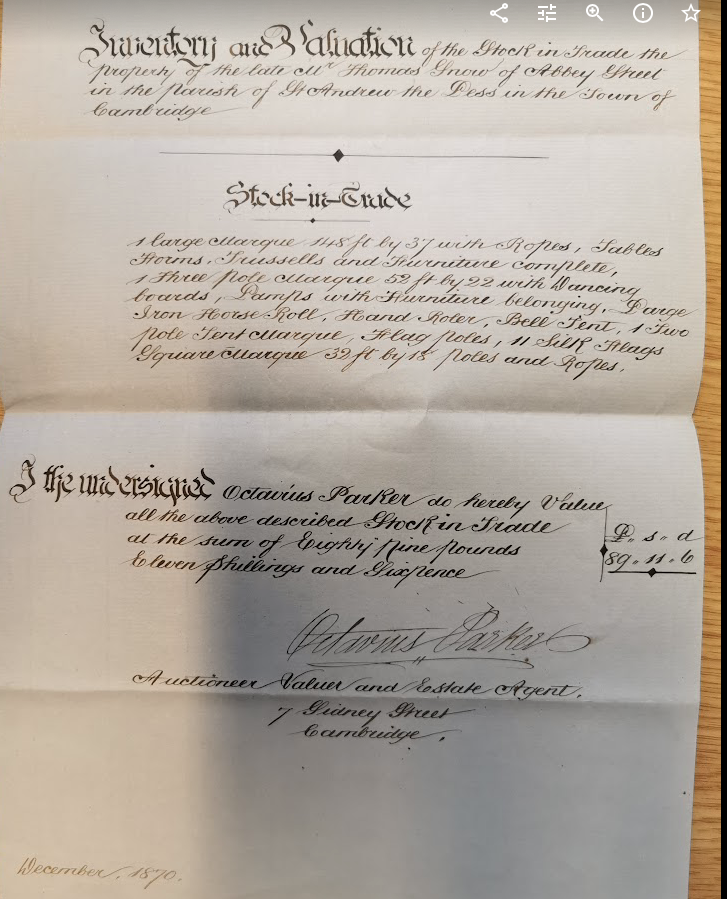 Inventory and Valuation of the Stock in Trade the
property of the late Mr Thomas Snow of Abbey Street
in the Parish of St Andrew the Less in the Town of
Cambridge
Stock-in-Trade
1 large Marque 148 ft by 37 with Ropes, Tables
Forms, Trussells and Furniture complete,
1 Three Pole Marque 52 ft by 22 with Dancing
boards, Lamps with Furniture belonging, Large
Iron Horse Roll, Hand Roler, Bell Tent, 1 Two
pole Tent Marque, Flag poles, 11 Silk Flags
Square Marque 39 ft by poles and Ropes,
I the undersigned Octavius Parker do hereby Value
all the above described Stock in Trade
at the sum of Eighty Nine pounds
Eleven Shillings and Sixpence
L. s. d
89. 11. 6
Octavius Parker
Auctioneer Valuer and Estate Agent.
7 Sidney Street
Cambridge.
December. 1870.